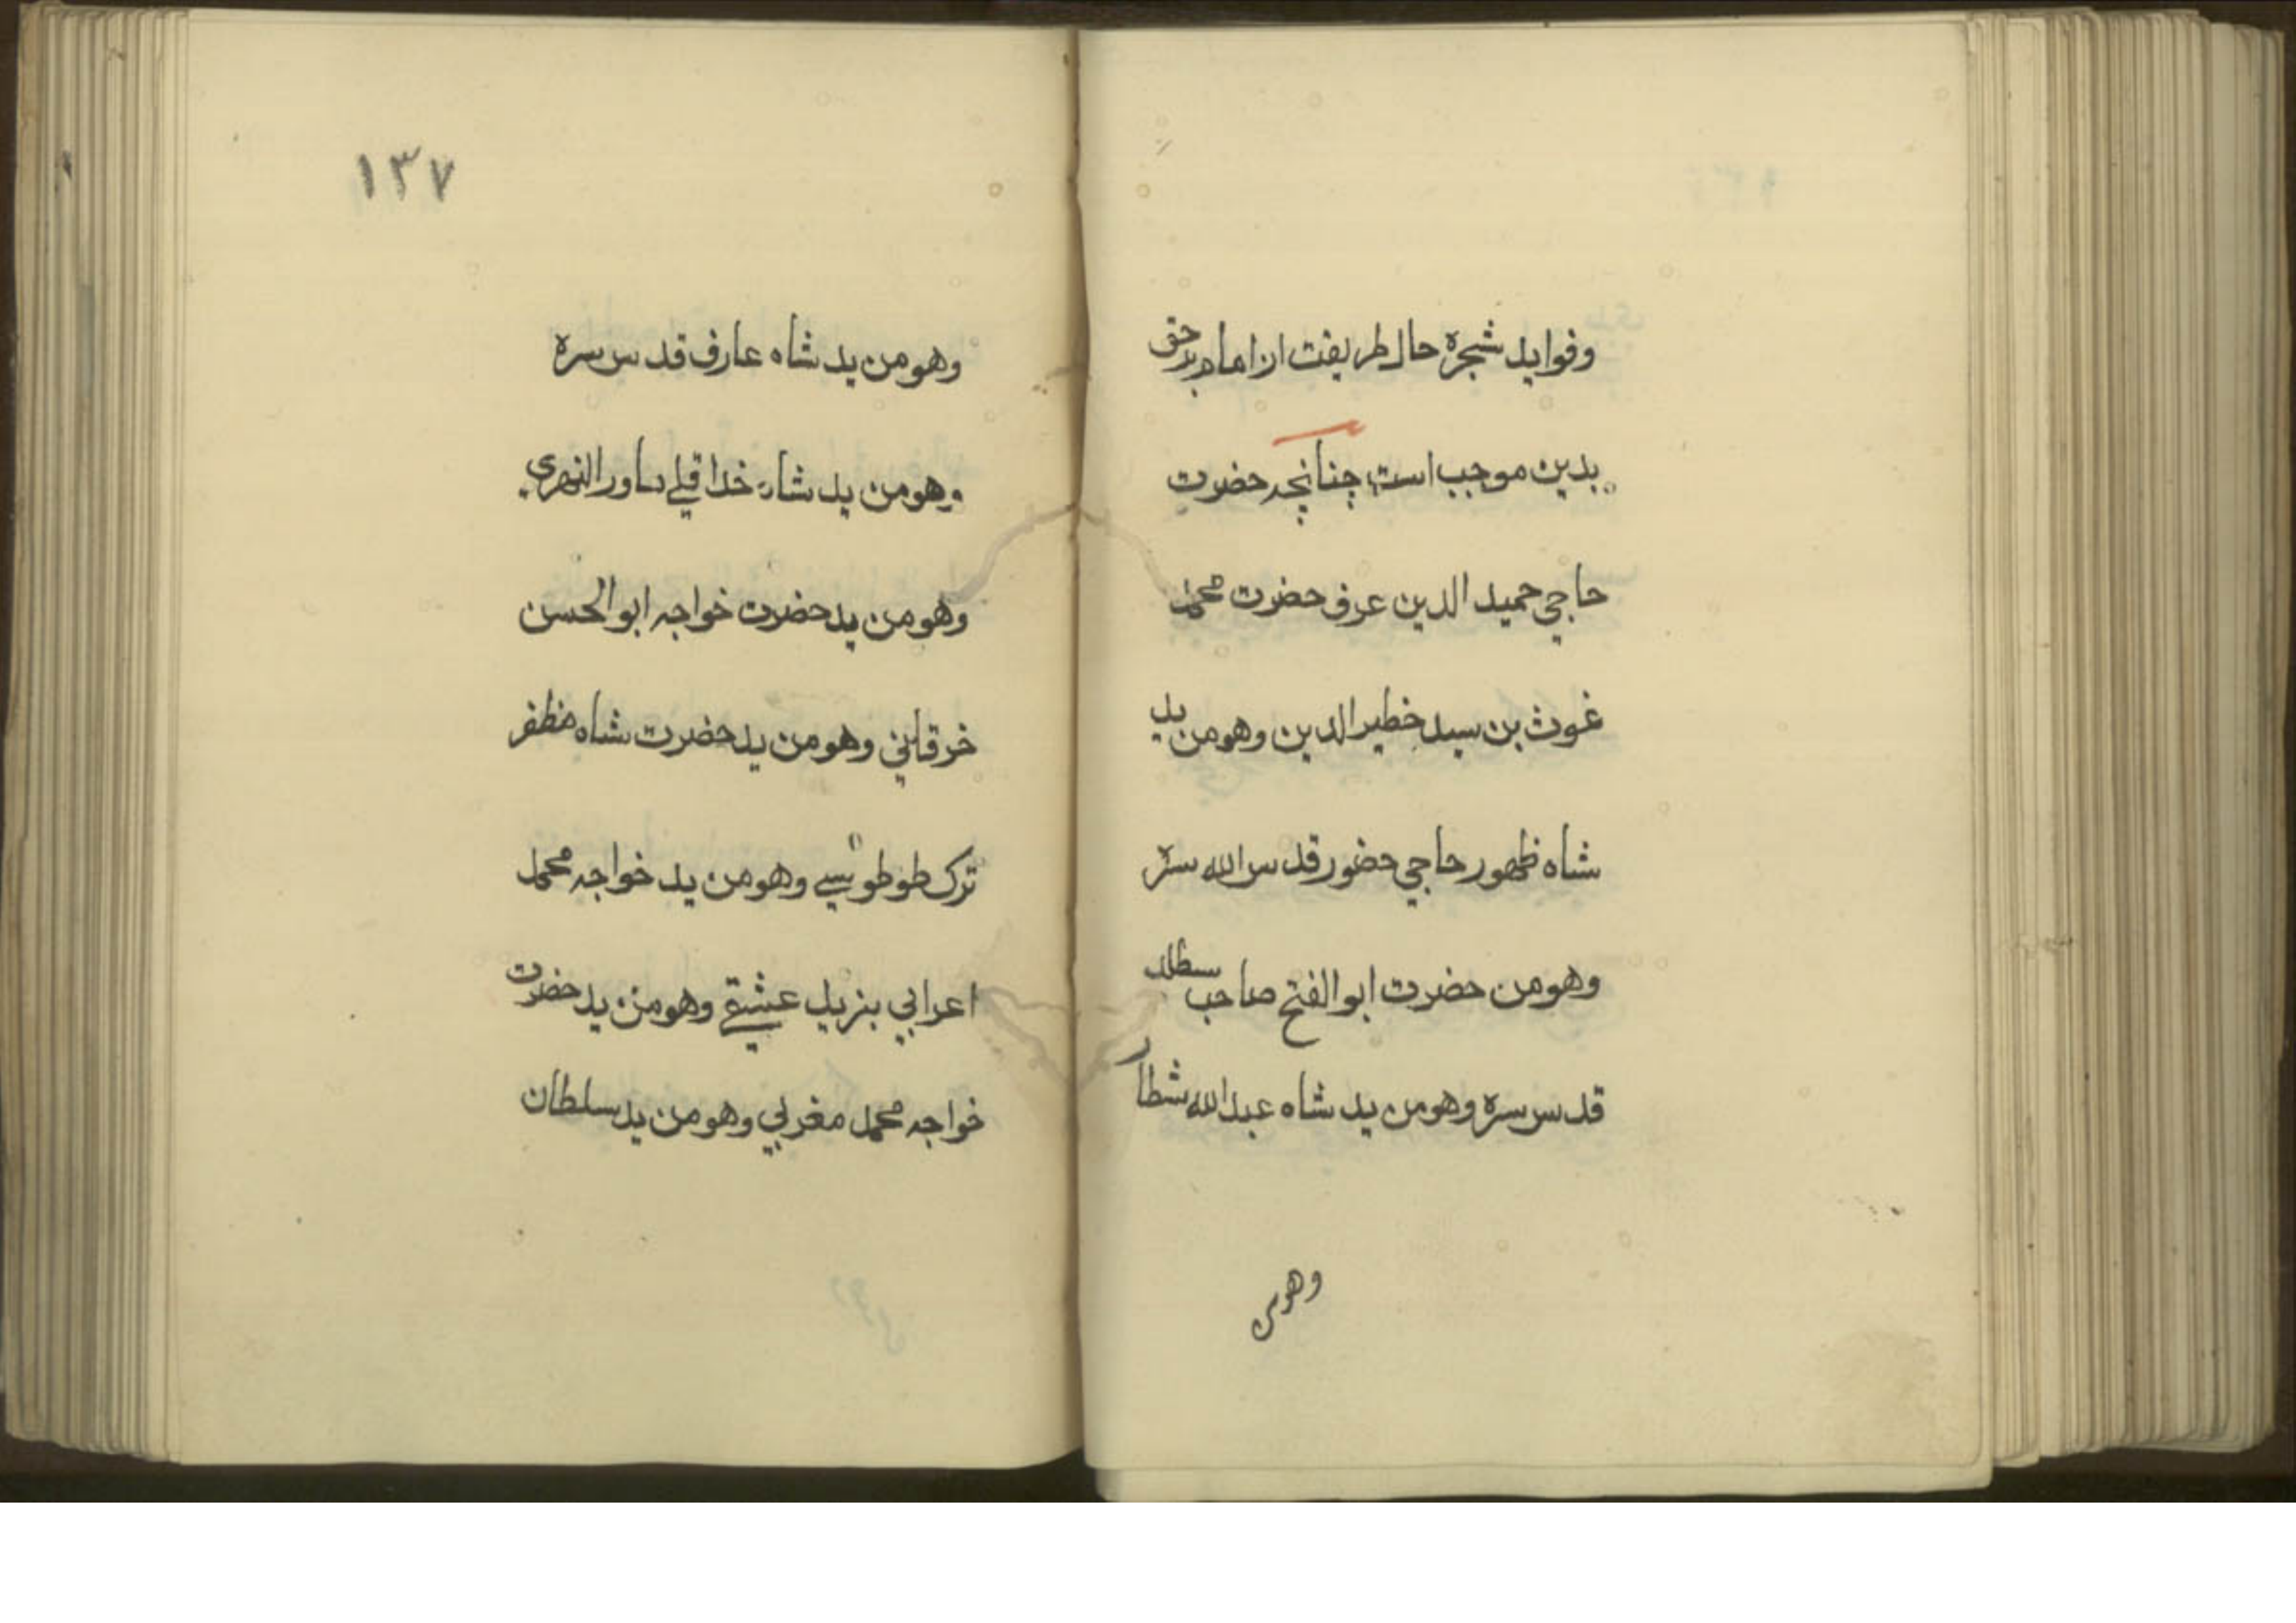 وفوايد شجرة حال طريقت از امام بر حق
بدين موجب است چنانچه حضرت
حاجي حميد الدين عرف حضرت محمد
غوث بن سيد خطير الدين وهو من يد
شاه ظهور حاجي حضور قدس الله سره
وهو من حضرت ابو الفتح صاحب
قدس سره وهو من يد شاه عبدالله شطار
وهو من
١٣٧
وهو من يد شاه عارف قدس سره
وهو من يد شاه خدا قلي ماور النهري
وهو من يد حضرت خواجه ابو الحسن
خرقاني وهو من يد حضرت شاه مظفر
ترك طوطوسي وهو من يد خواجه محمد
اعرابي بنزيل عشقي وهو من يد حضرت
خواجه محمد مغربي وهو من يد سلطان